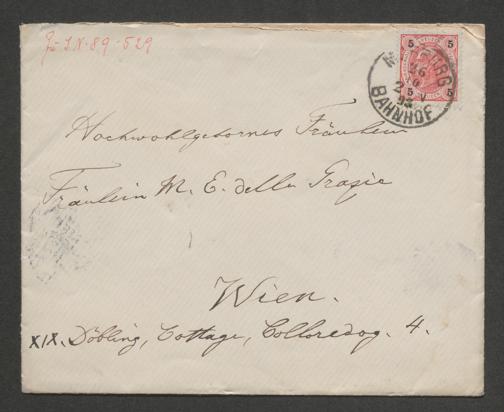 J. N. 89.529
5 5
BAHNHOF
5 5
Hochwohlgebornes Fräulein
Fräulein M. E. delle Grazie
Wien.
XIX. Döbling, Cottage, Colloredog. 4.